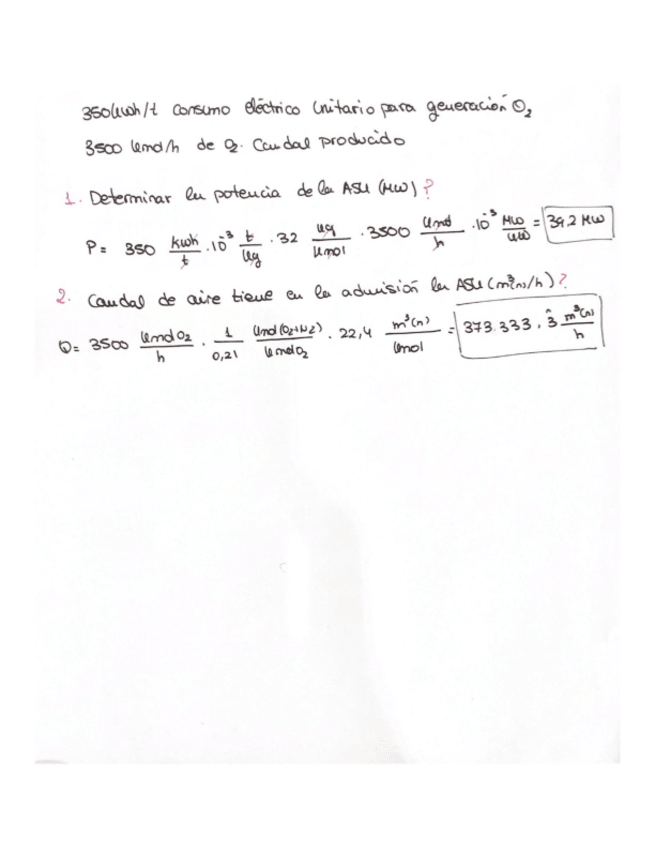 350kwh/t consumo eléctrico unitario para generación O₂
3500 kmol/h de O₂. Caudal producido
1. Determinar la potencia de la ASU (MW)?
P = 350 kwh/t · 10⁻³ t/kg · 32 kg/kmol · 3500 kmol/h · 10⁻³ MW/kW = 39,2 MW
2. Caudal de aire tiene en la admisión la ASU (m³(n)/h)?
Q = 3500 kmol O₂/h · 1/0,21 kmol(O₂+N₂)/kmol O₂ · 22,4 m³(n)/kmol = 373.333,3̂ m³(n)/h